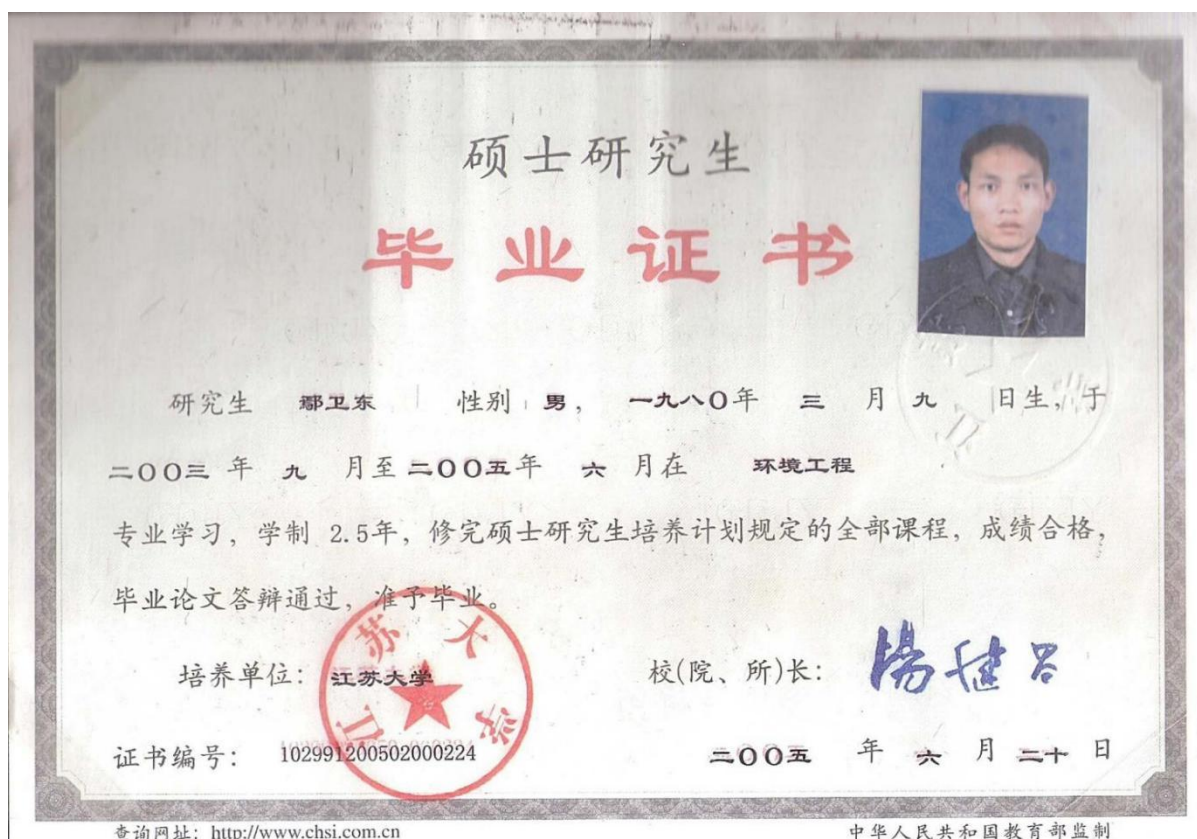 硕士研究生
毕业证书
研究生 鄢卫东 性别 男， 一九八〇年 三 月 九 日生，于
二〇〇三 年 九 月至 二〇〇五年 六 月在 环境工程
专业学习，学制 2.5年，修完硕士研究生培养计划规定的全部课程，成绩合格，
毕业论文答辩通过，准予毕业。
江苏大学
培养单位：江苏大学 校(院、所)长：
证书编号：102991200502000224 二〇〇五 年 六 月 二十 日
查询网址：http://www.chsi.com.cn 中华人民共和国教育部监制